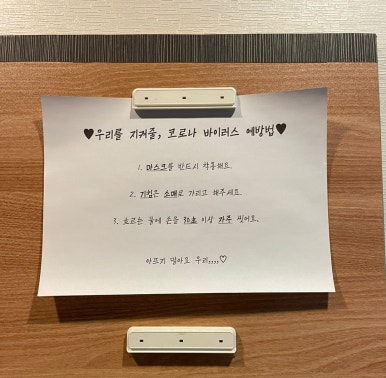 ♥우리를 지켜줄, 코로나 바이러스 예방법♥
1. 마스크를 반드시 착용해요.
2. 기침은 소매로 가리고 해주세요.
3. 흐르는 물에 손을 30초 이상 자주 씻어요.
아프지 말아요 우리,,,,♡